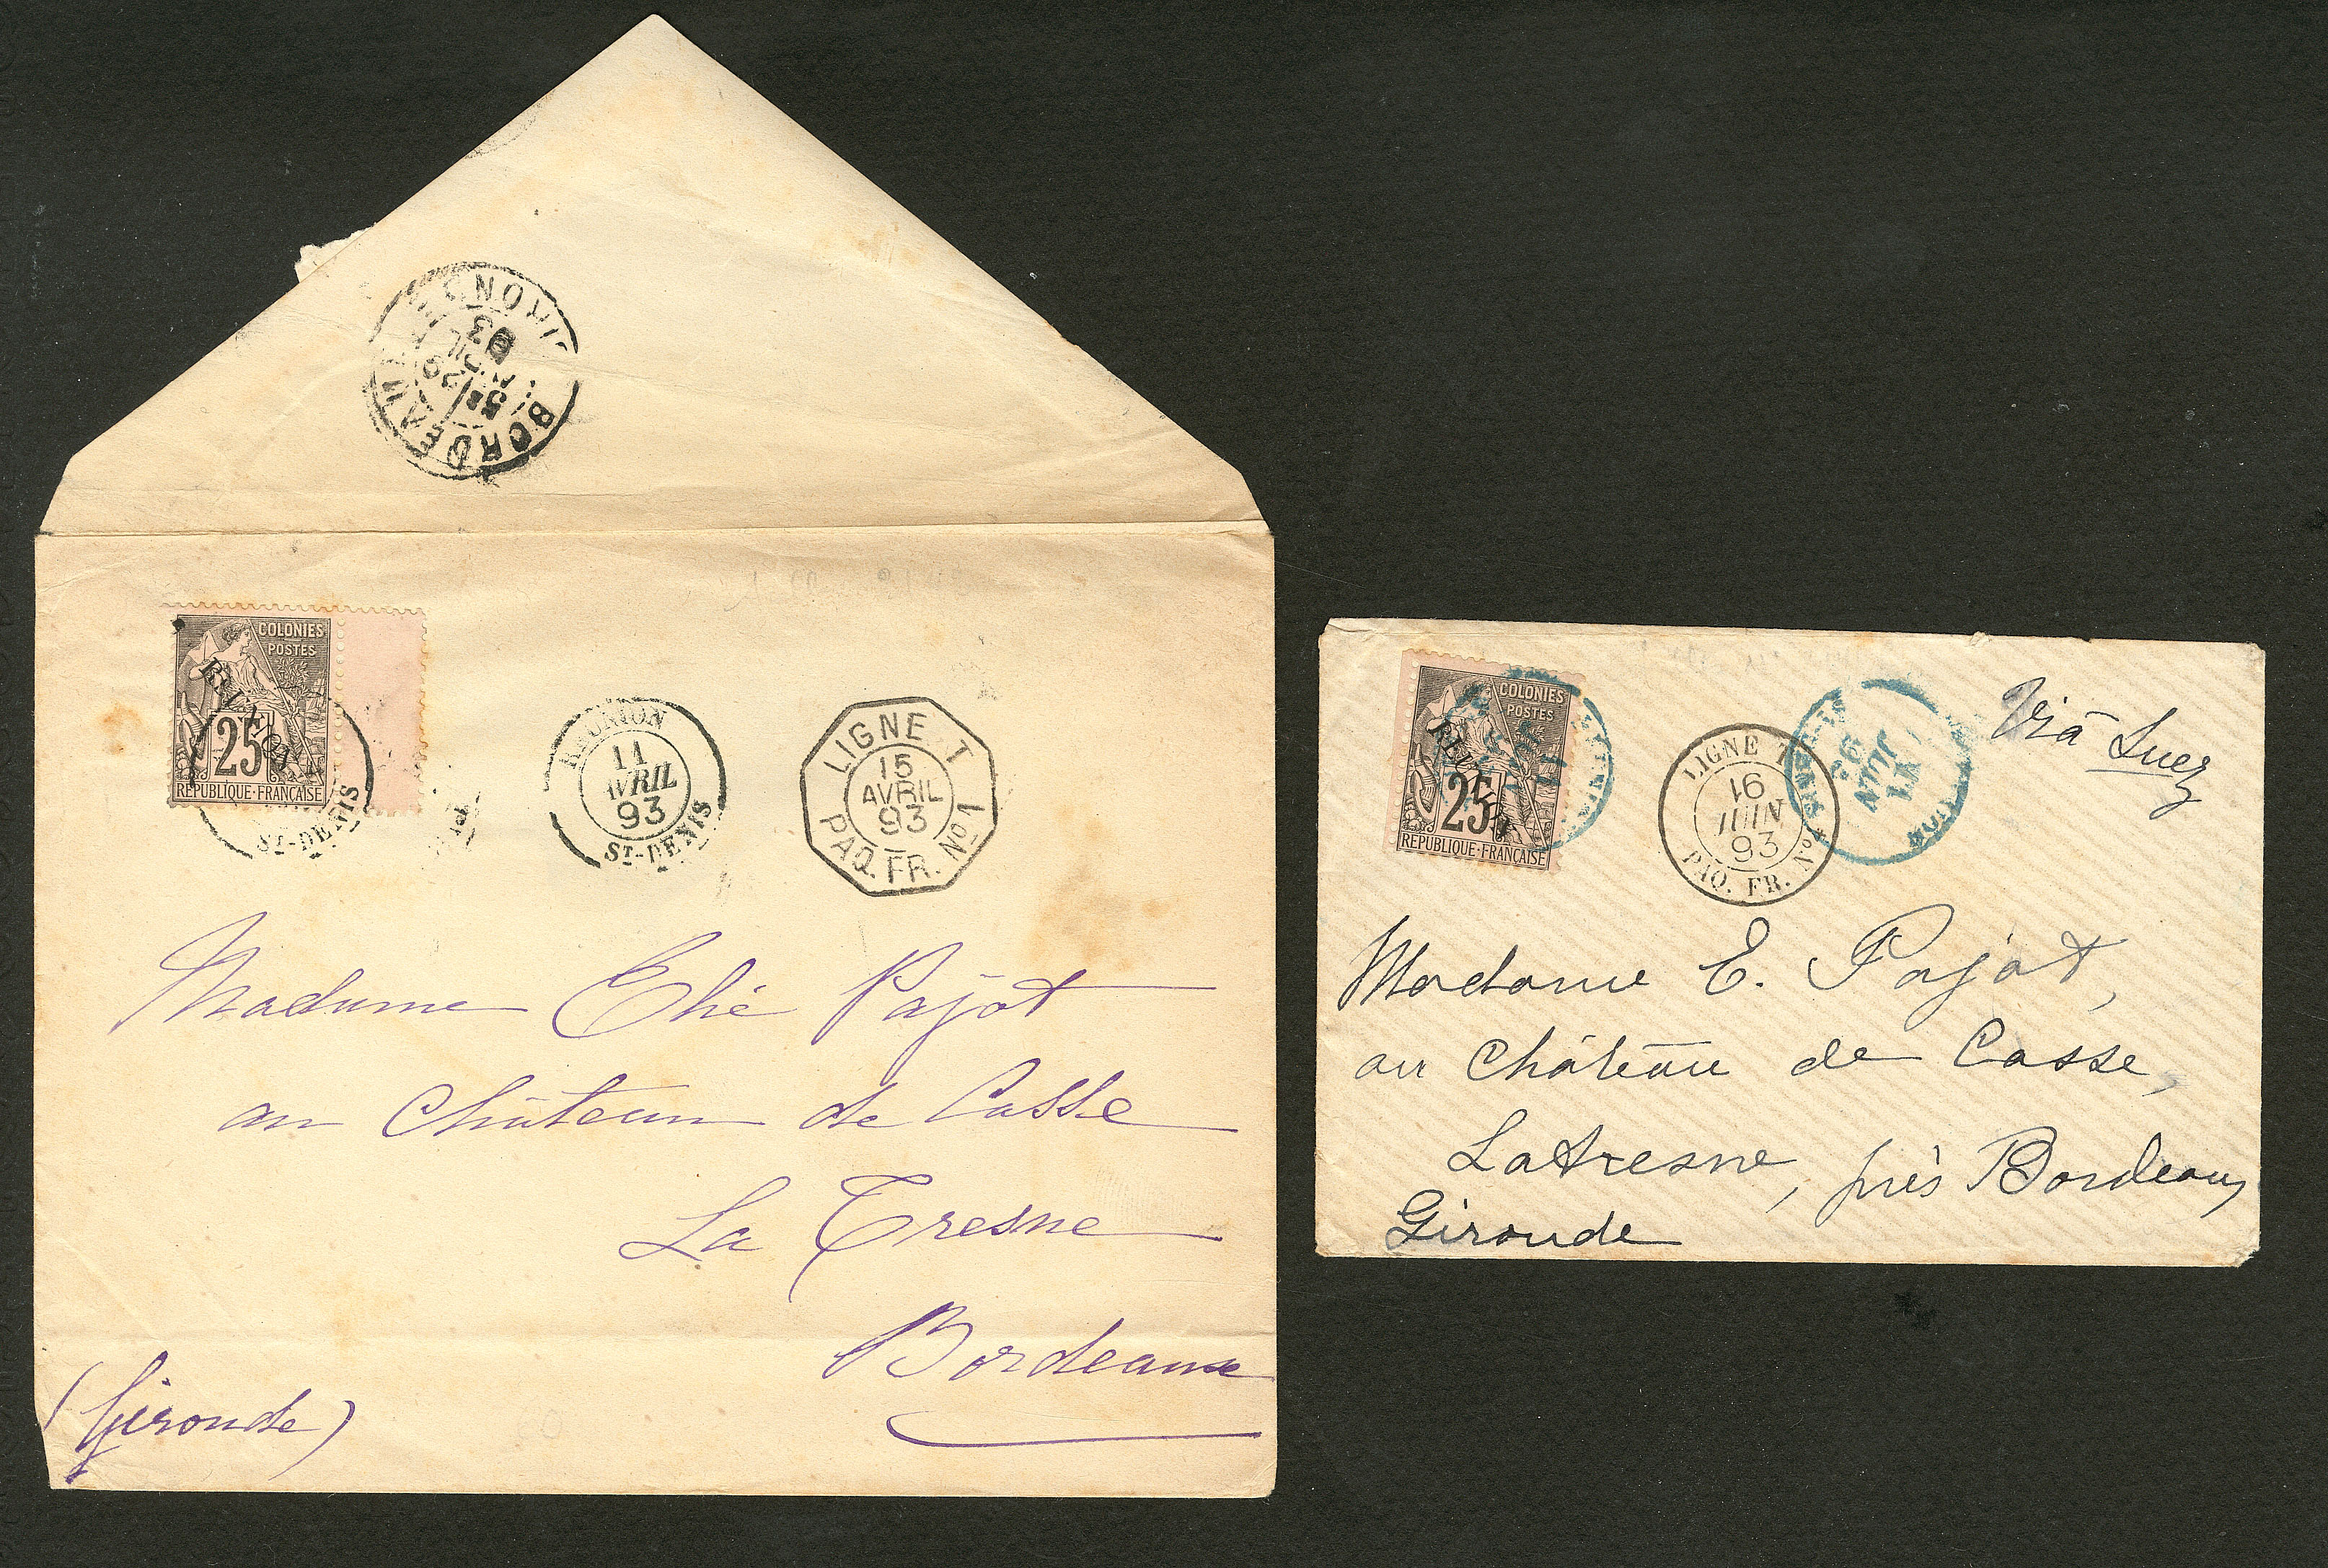 BORDEAUX GIRONDE
5E
93
COLONIES
POSTES
RÉUNION
25
RÉPUBLIQUE-FRANÇAISE
ST-DENIS
RÉUNION
11
AVRIL
93
ST-DENIS
LIGNE T
15
AVRIL
93
PAQ. FR. No 1
Madame Elie Pajot
au Château de Casse
La Tresne
Bordeaux
(Gironde)
COLONIES
POSTES
25
RÉPUBLIQUE-FRANÇAISE
LIGNE T
16
JUIN
93
PAQ. FR. No
JUIN
Viâ Suez
Madame E. Pajot,
au Château de Casse,
Latresne, près Bordeaux
Gironde